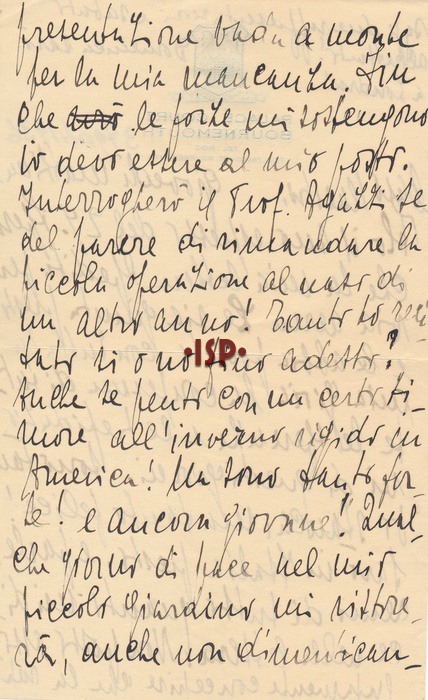 presentazione vada a monte
per la mia mancanza. Fin
che avrò le forze mi sostengono
io devo essere al mio posto.
Interrogherò il Prof. Agazzi se
del parere di rimandare la
piccola operazione al naso di
un altro anno! Tanto ho reci
tato si o no fino adesso?
Anche se penso con un certo ti-
more all'inverno rigido in
America! Ma sono tanto for-
te! e ancora giovane! Qual-
che giorno di pace nel mio
piccolo giardino mi ristore-
rà, anche non dimentican-
·ISP·
BOURNEMOUTH